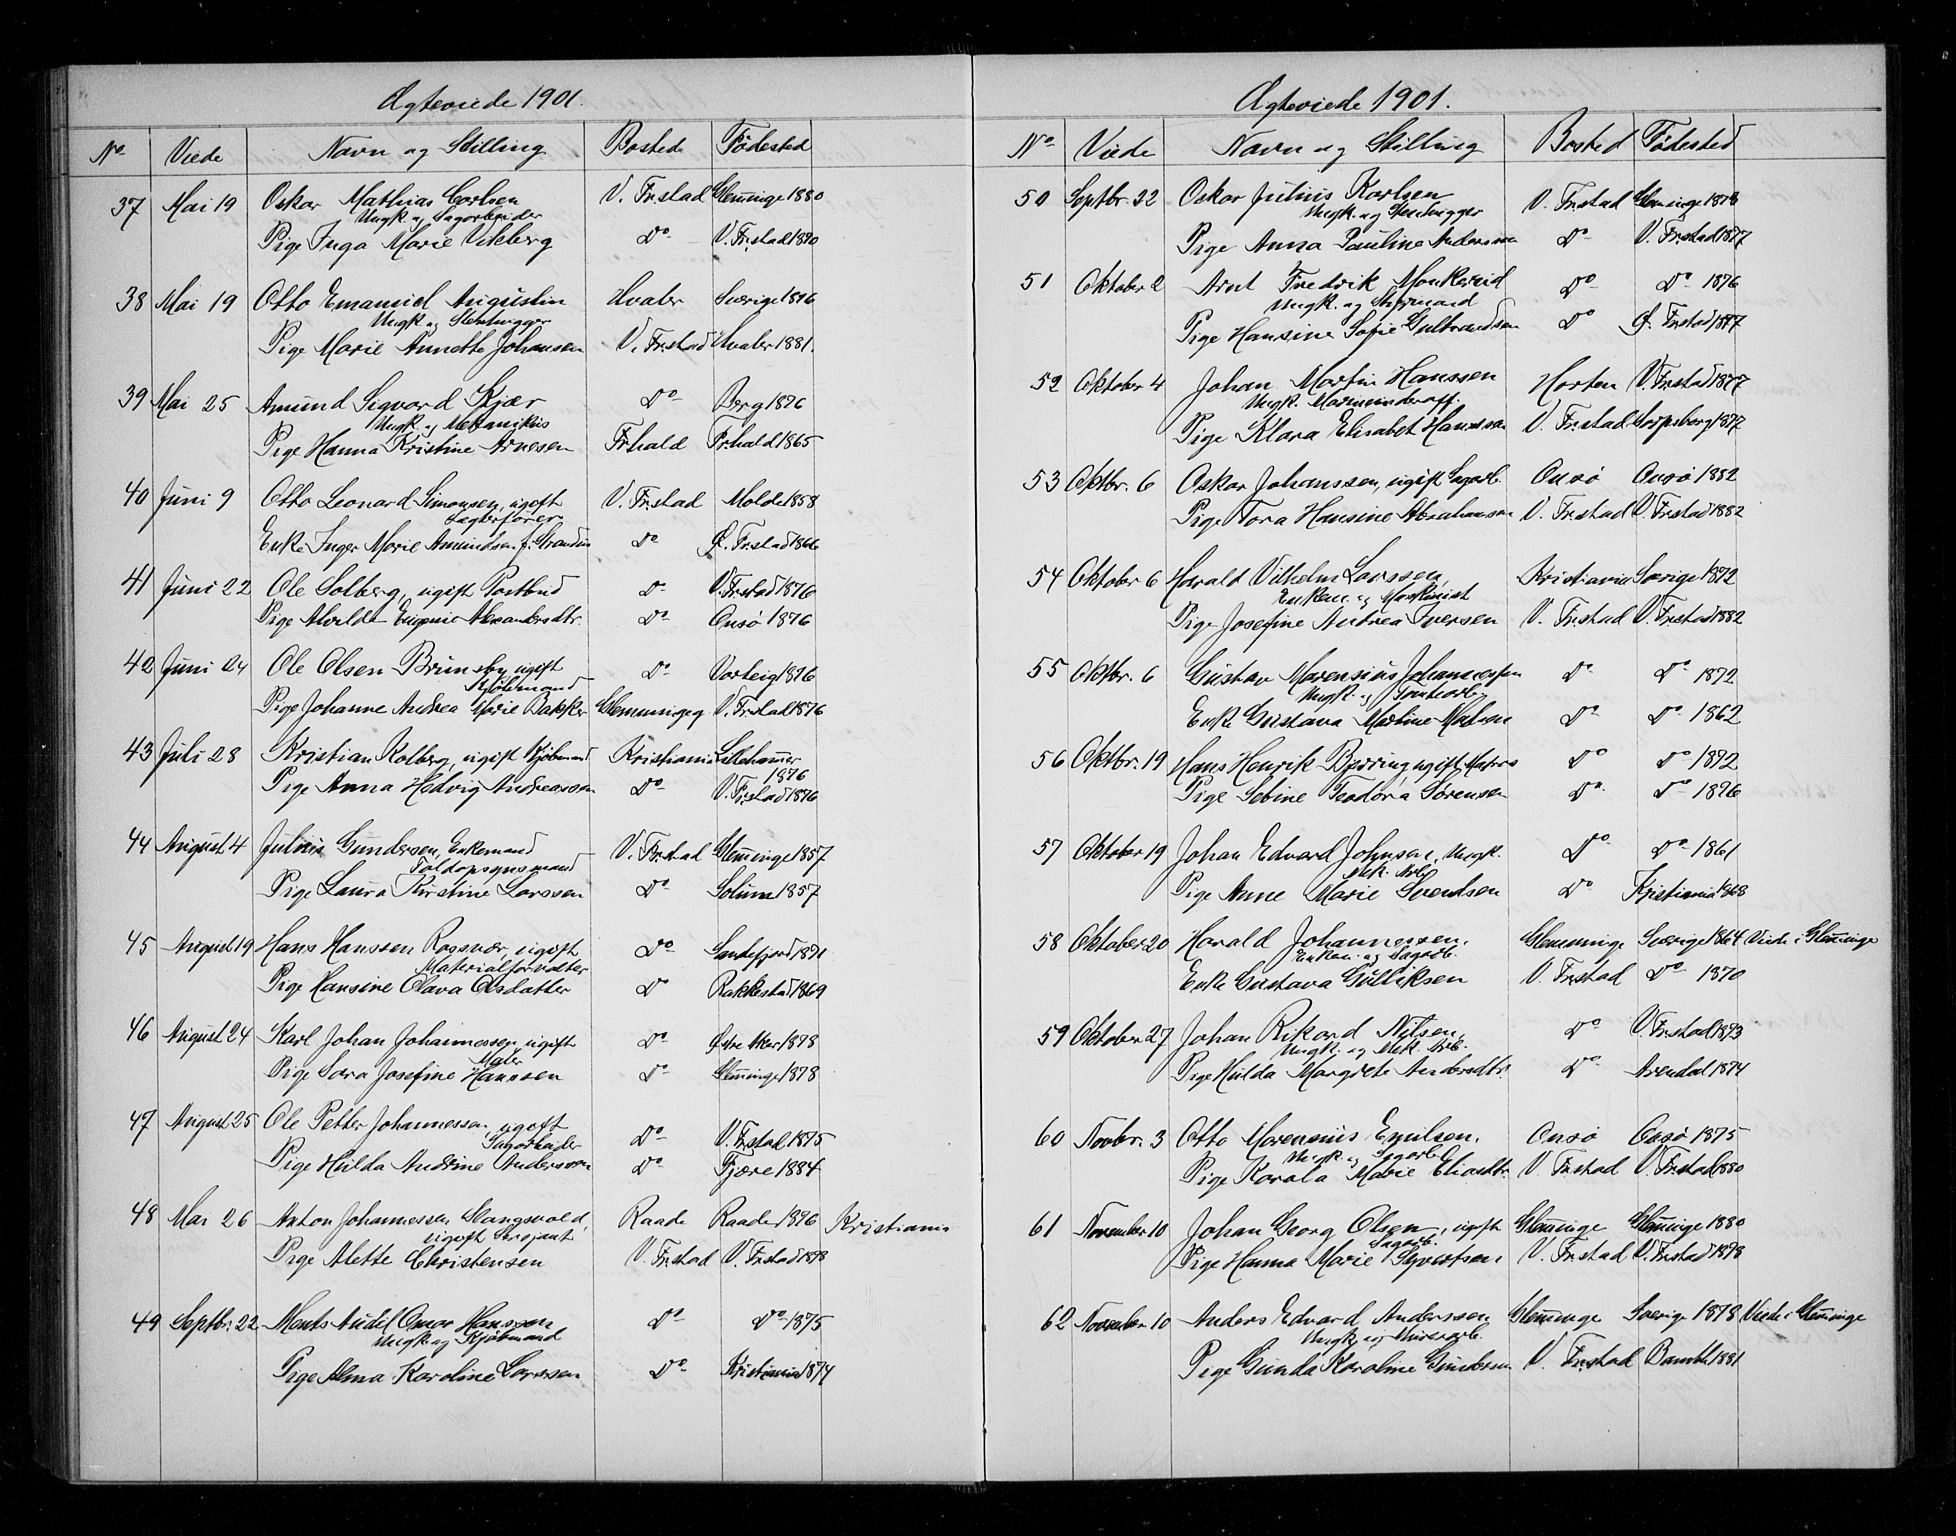 Ægteviede 1901.
No Viede Navn og Stilling Bosted Fødested
37 Mai 19 Oskar Mathias Carlsen V. Fr.stad Glemminge 1880
Ungk. og Sagarbeider
Pige Inga Marie Vikberg Do V. Fr.stad 1890
38 Mai 19 Otto Emanuel Augustin Hvaler Sverige 1876
Ungk. og Stenhugger
Pige Marie Annette Johansen V. Fr.stad Hvaler 1881.
39 Mai 25 Amund Sigvard Kjær Do Berg 1876
Ungk. og Mekanikus
Pige Hanna Kristine Arnesen Fr.hald Fr.hald 1865
40 Juni 9 Otto Leonard Simonsen, ugift V. Fr.stad Molde 1858
Lægterfører
Enke Inger Marie Amundsen f. Do Ø. Fr.stad 1866
41 Juni 22 Ole Solberg, ugift Postbud Do V. Fr.stad 1876
Pige Alvilde Eugenie Alexandersdtr. Do Onsø 1876
42 Juni 24 Ole Olsen Brunsby, ugift Do Varteig 1876
Kjøbmand
Pige Johanne Andrea Marie Bakke Glemminge V. Fr.stad 1876
43 Juli 28 Kristian Kolberg, ugift Kjøbmand Kristiania Lillehammer
1876
Pige Anna Hedvig Andreassen Do V. Fr.stad 1876
44 August 4 Julius Gundersen, Enkemand V. Fr.stad Glemminge 1857
Toldopsynsmand
Pige Laura Kirstine Larssen Do Solum 1857
45 August 19 Hans Hanssen Rossnæs, ugift Do Sandefjord 1871
Materialforvalter
Pige Hansine Olava Olsdatter Do Rakkestad 1869
46 August 24 Karl Johan Johannessen, ugift Do Østre Aker 1878
Maler
Pige Sara Josefine Hanssen Do Glemminge 1878
47 August 25 Ole Petter Johannessen, ugift Do V. Fr.stad 1875
Sagarbeider
Pige Hulda Andrine Anderssen Do Fjære 1884
48 Mai 26 Anton Johannessen Slangsvold, Raade Raade 1876 Kristiania
ugift Sersjant
Pige Alette Christensen V. Fr.stad V. Fr.stad 1878
49 Septbr. 22 Ments Audel Omar Hanssen Do Do 1875
Ungk. og Kjøbmand
Pige Alma Karoline Larssen Do Kristiania 1874
Ægteviede 1901.
No Viede Navn og Stilling Bosted Fødested
50 Septbr. 22 Oskar Julius Karlsen V. Fr.stad Glemminge 1878
Ungk. og Stenhugger
Pige Anna Pauline Anderssen Do V. Fr.stad 1877
51 Oktober 2 Arnt Fredrik Do Do 1876
Ungk. og Styrmand
Pige Hansine Sofie Gulbrandsen Do Ø. Fr.stad 1877
52 Oktober 4 Johan Martin Hanssen Horten V. Fr.stad 1877
Ungk. Marineunderoff.
Pige Klara Elisabet Hanssen V. Fr.stad Sarpsborg 1877
53 Oktbr. 6 Oskar Johanssen, ugift Sagarb. Onsø Onsø 1882
Pige Tora Hansine Abrahamsen V. Fr.stad V. Fr.stad 1882
54 Oktober 6 Harald Vilhelm Larssen, Kristiania Sverige 1872
Enkem. og Maskinist
Pige Josefine Andrea Iversen V. Fr.stad V. Fr.stad 1882
55 Oktbr. 6 Gustav Marensius Johannessen Do Do 1872
Ungk. og Tomtearb.
Enke Gustava Martine Do Do 1862
56 Oktbr. 19 Hans Henrik Bjørring, ugift Matros Do Do 1872
Pige Sebine Teodora Sørensen Do Do 1876
57 Oktober 19 Johan Edvard Johnsen, Ungk. Do Do 1861
Mek. Arb.
Pige Anne Marie Svendsen Do Kristiania 1868
58 Oktober 20 Harald Johannessen. Glemminge Sverige 1864 Viede i Glemminge
Enkem. og Sagarb.
Enke Gustava Gulliksen V. Fr.stad Do 1870
59 Oktober 27 Johan Rikard Nilsen, Do V. Fr.stad 1873
Ungk. og Mek. Arb.
Pige Hulda Margrete Andersdtr. Do Arendal 1874
60 Novbr. 3 Otto Marensius Emilsen. Onsø Onsø 1875
Ungk. og Sagarb.
Pige Karala Marie Eliasdtr. V. Fr.stad V. Fr.stad 1880
61 November 10 Johan Georg Olsen, ugift Glemminge Glemminge 1880
Sagarb.
Pige Hanna Marie Syvertsen V. Fr.stad V. Fr.stad 1878
62 November 10 Anders Edvard Anderssen Glemminge Sverige 1878 Viede i Glemminge
Ungk. og Murerarb.
Pige Gunda Karoline Gundersen V. Fr.stad Bamble 1881